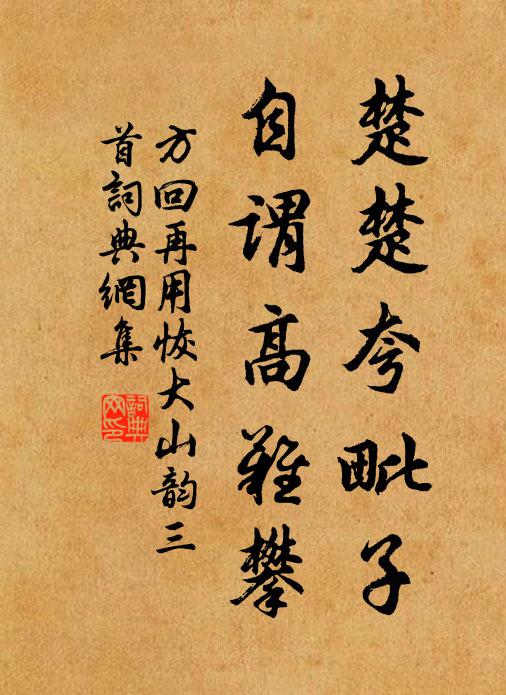 楚楚夸毗子
自谓高难攀
方回再用恢大山韵三
首词典網集
詞典
网印